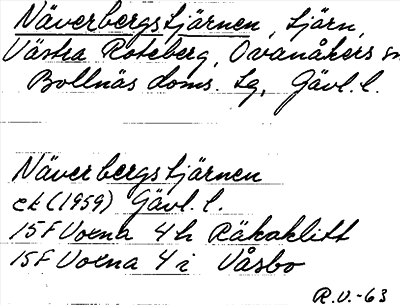 Näverbergstjärnen, tjärn,
Västra Roteberg, Ovanåkers sn
Bollnäs doms. tg, Gävl. l.
Näverbergstjärnen
ek (1959) Gävl. l.
15F Voxna 4h Räkaklitt
15F Voxna 4i Våsbo
R.V.-63